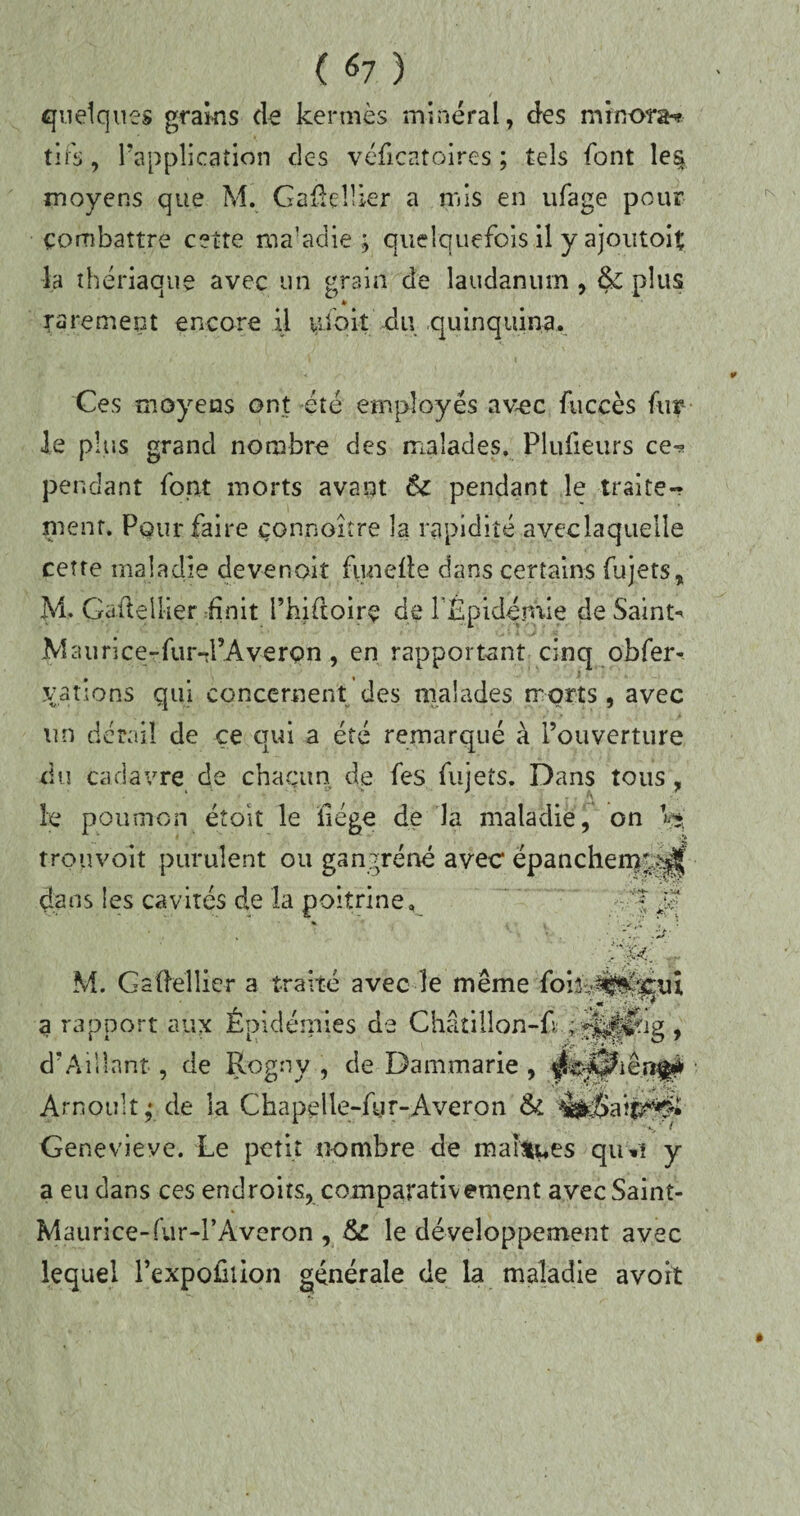 ( 67 )
quelques grains de kermès minéral, des minora-
tifs, l'application des véſicatoires ; tels ſont les
moyens que M. Gaſtellier a mis en uſage pour
combattre cette maladie ; quelquefois il y ajoutoit
la thériaque avec un grain de laudanum, & plus
rarement encore il uſoit du quinquina.
Ces moyens ont été employés avec ſuccès ſur
le plus grand nombre des malades. Pluſieurs ce-
pendant ſont morts avant & pendant le traite-
ment. Pour faire connoître la rapidité avec laquelle
cette maladie devenoit funeſte dans certains ſujets,
M. Gaſtellier finit l'hiſtoire de l'Épidémie de Saint-
Maurice-ſur-l'Averon, en rapportant cinq obſer-
vations qui concernent des malades morts, avec
un détail de ce qui a été remarqué à l'ouverture
du cadavre de chacun de ſes ſujets. Dans tous,
le poumon étoit le ſiége de la maladie, on
trouvoit purulent ou gangréné avec
dans les cavités de la poitrine.
M. Gaſtellier a traité avec le même
a rapport aux Épidémies de
d'Aillant, de Rogny, de Dammarie,
Arnoult ; de la Chapelle-ſur-Averon &
Genevieve. Le petit nombre de y
a eu dans ces endroits, comparativement avec Saint-
Maurice-ſur-l'Averon, & le développement avec
lequel l'expoſition générale de la maladie avoit